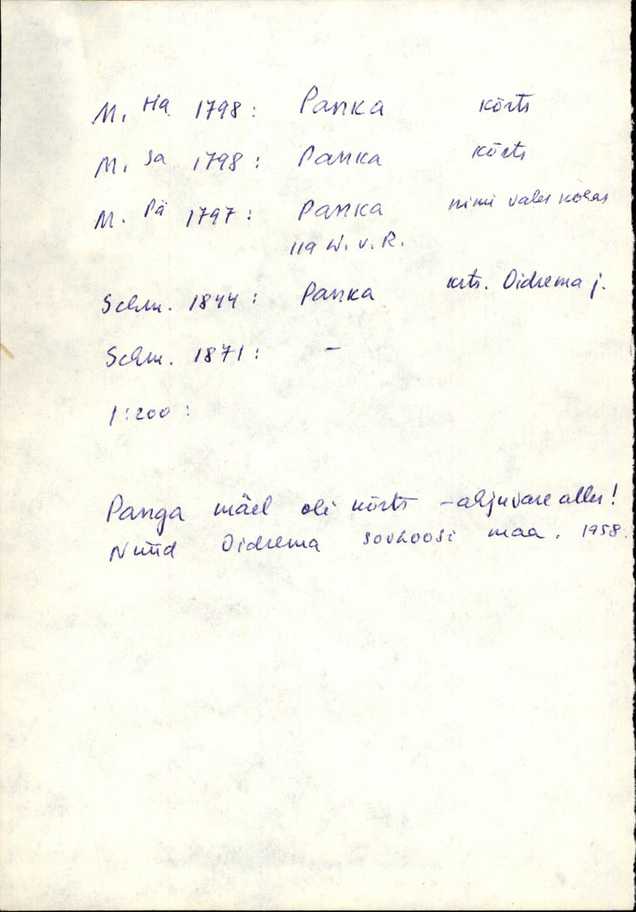 M. Ha 1798: Panka kõrts
M. Sa 1798: Panka kõrts
M. Pä 1797: Panka nimi vales kohas
119 W. v. R.
Schm. 1844: Panka krts. Oidrema j.
Schm. 1871: –
1:200:
Panga mäel oli kõrts – ahjuvare alles!
Nüüd Oidrema sovhoosi maa. 1958.